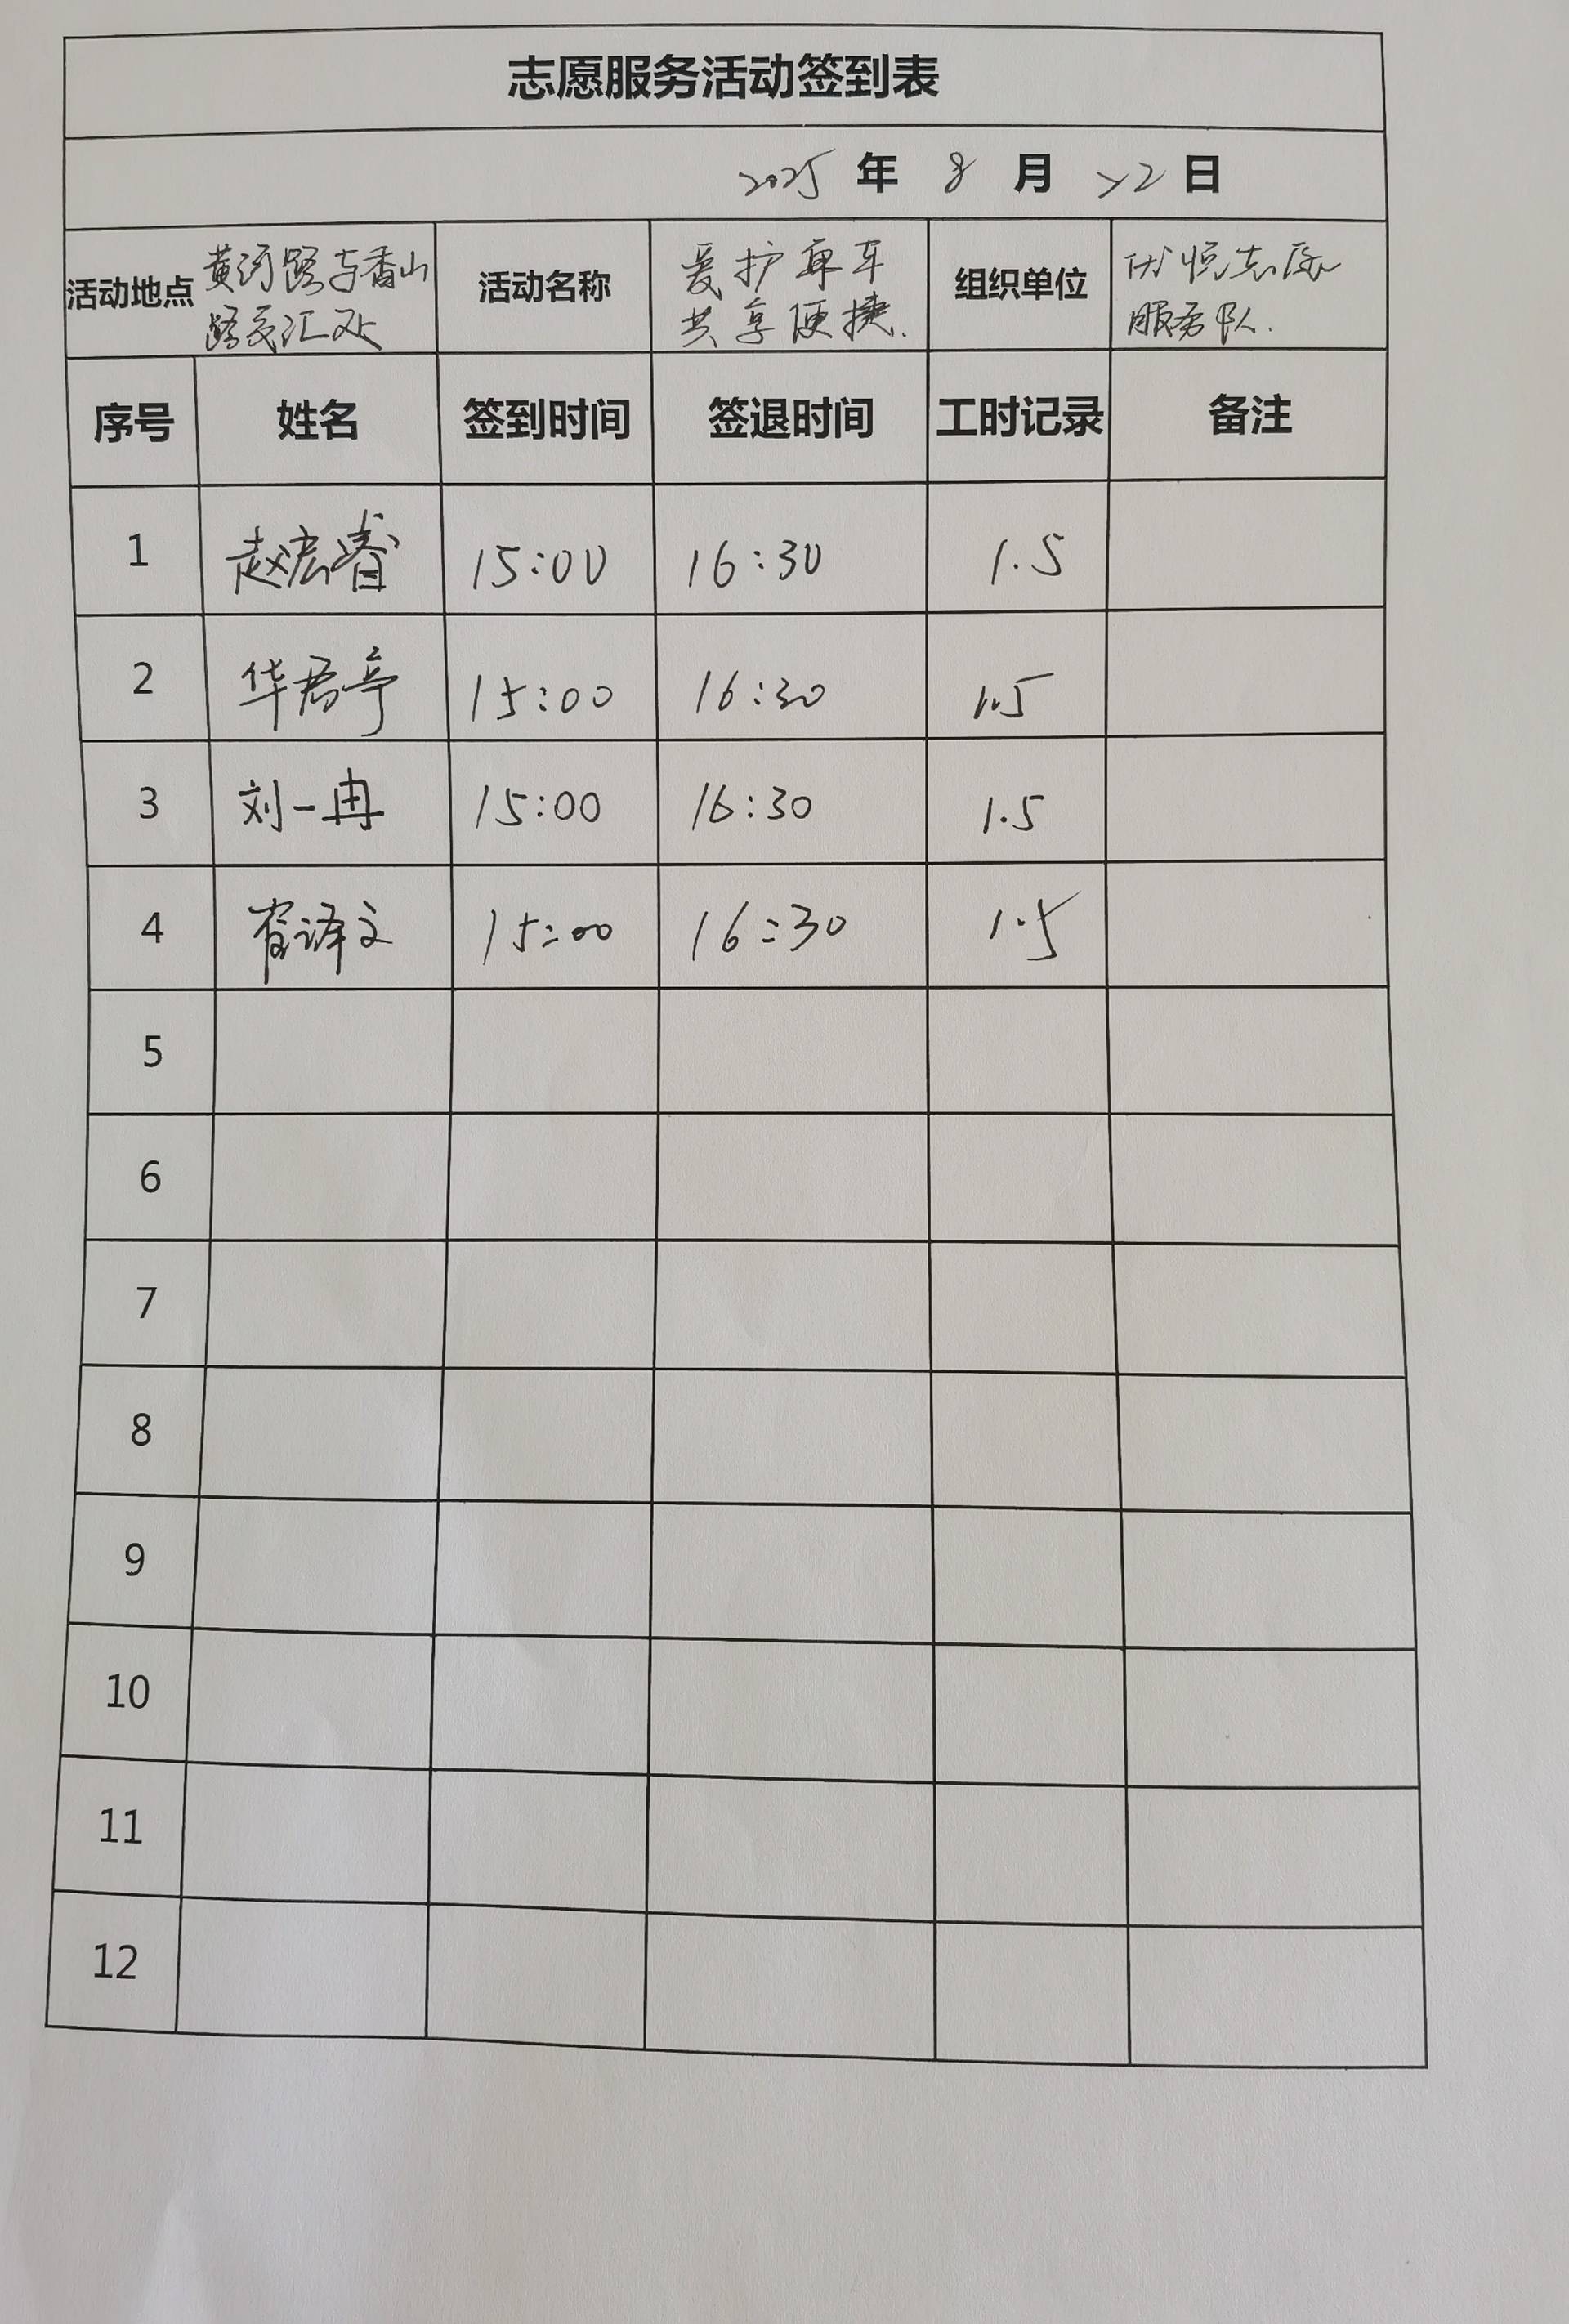 志愿服务活动签到表
2025 年 8 月 22 日
活动地点 黄河路与香山路交汇处 活动名称 爱护单车共享便捷. 组织单位 优恒志愿服务队.
序号 姓名 签到时间 签退时间 工时记录 备注
1 赵宏睿 15:00 16:30 1.5
2 华君亭 15:00 16:30 1.5
3 刘一冉 15:00 16:30 1.5
4 译文 15:00 16:30 1.5
5
6
7
8
9
10
11
12